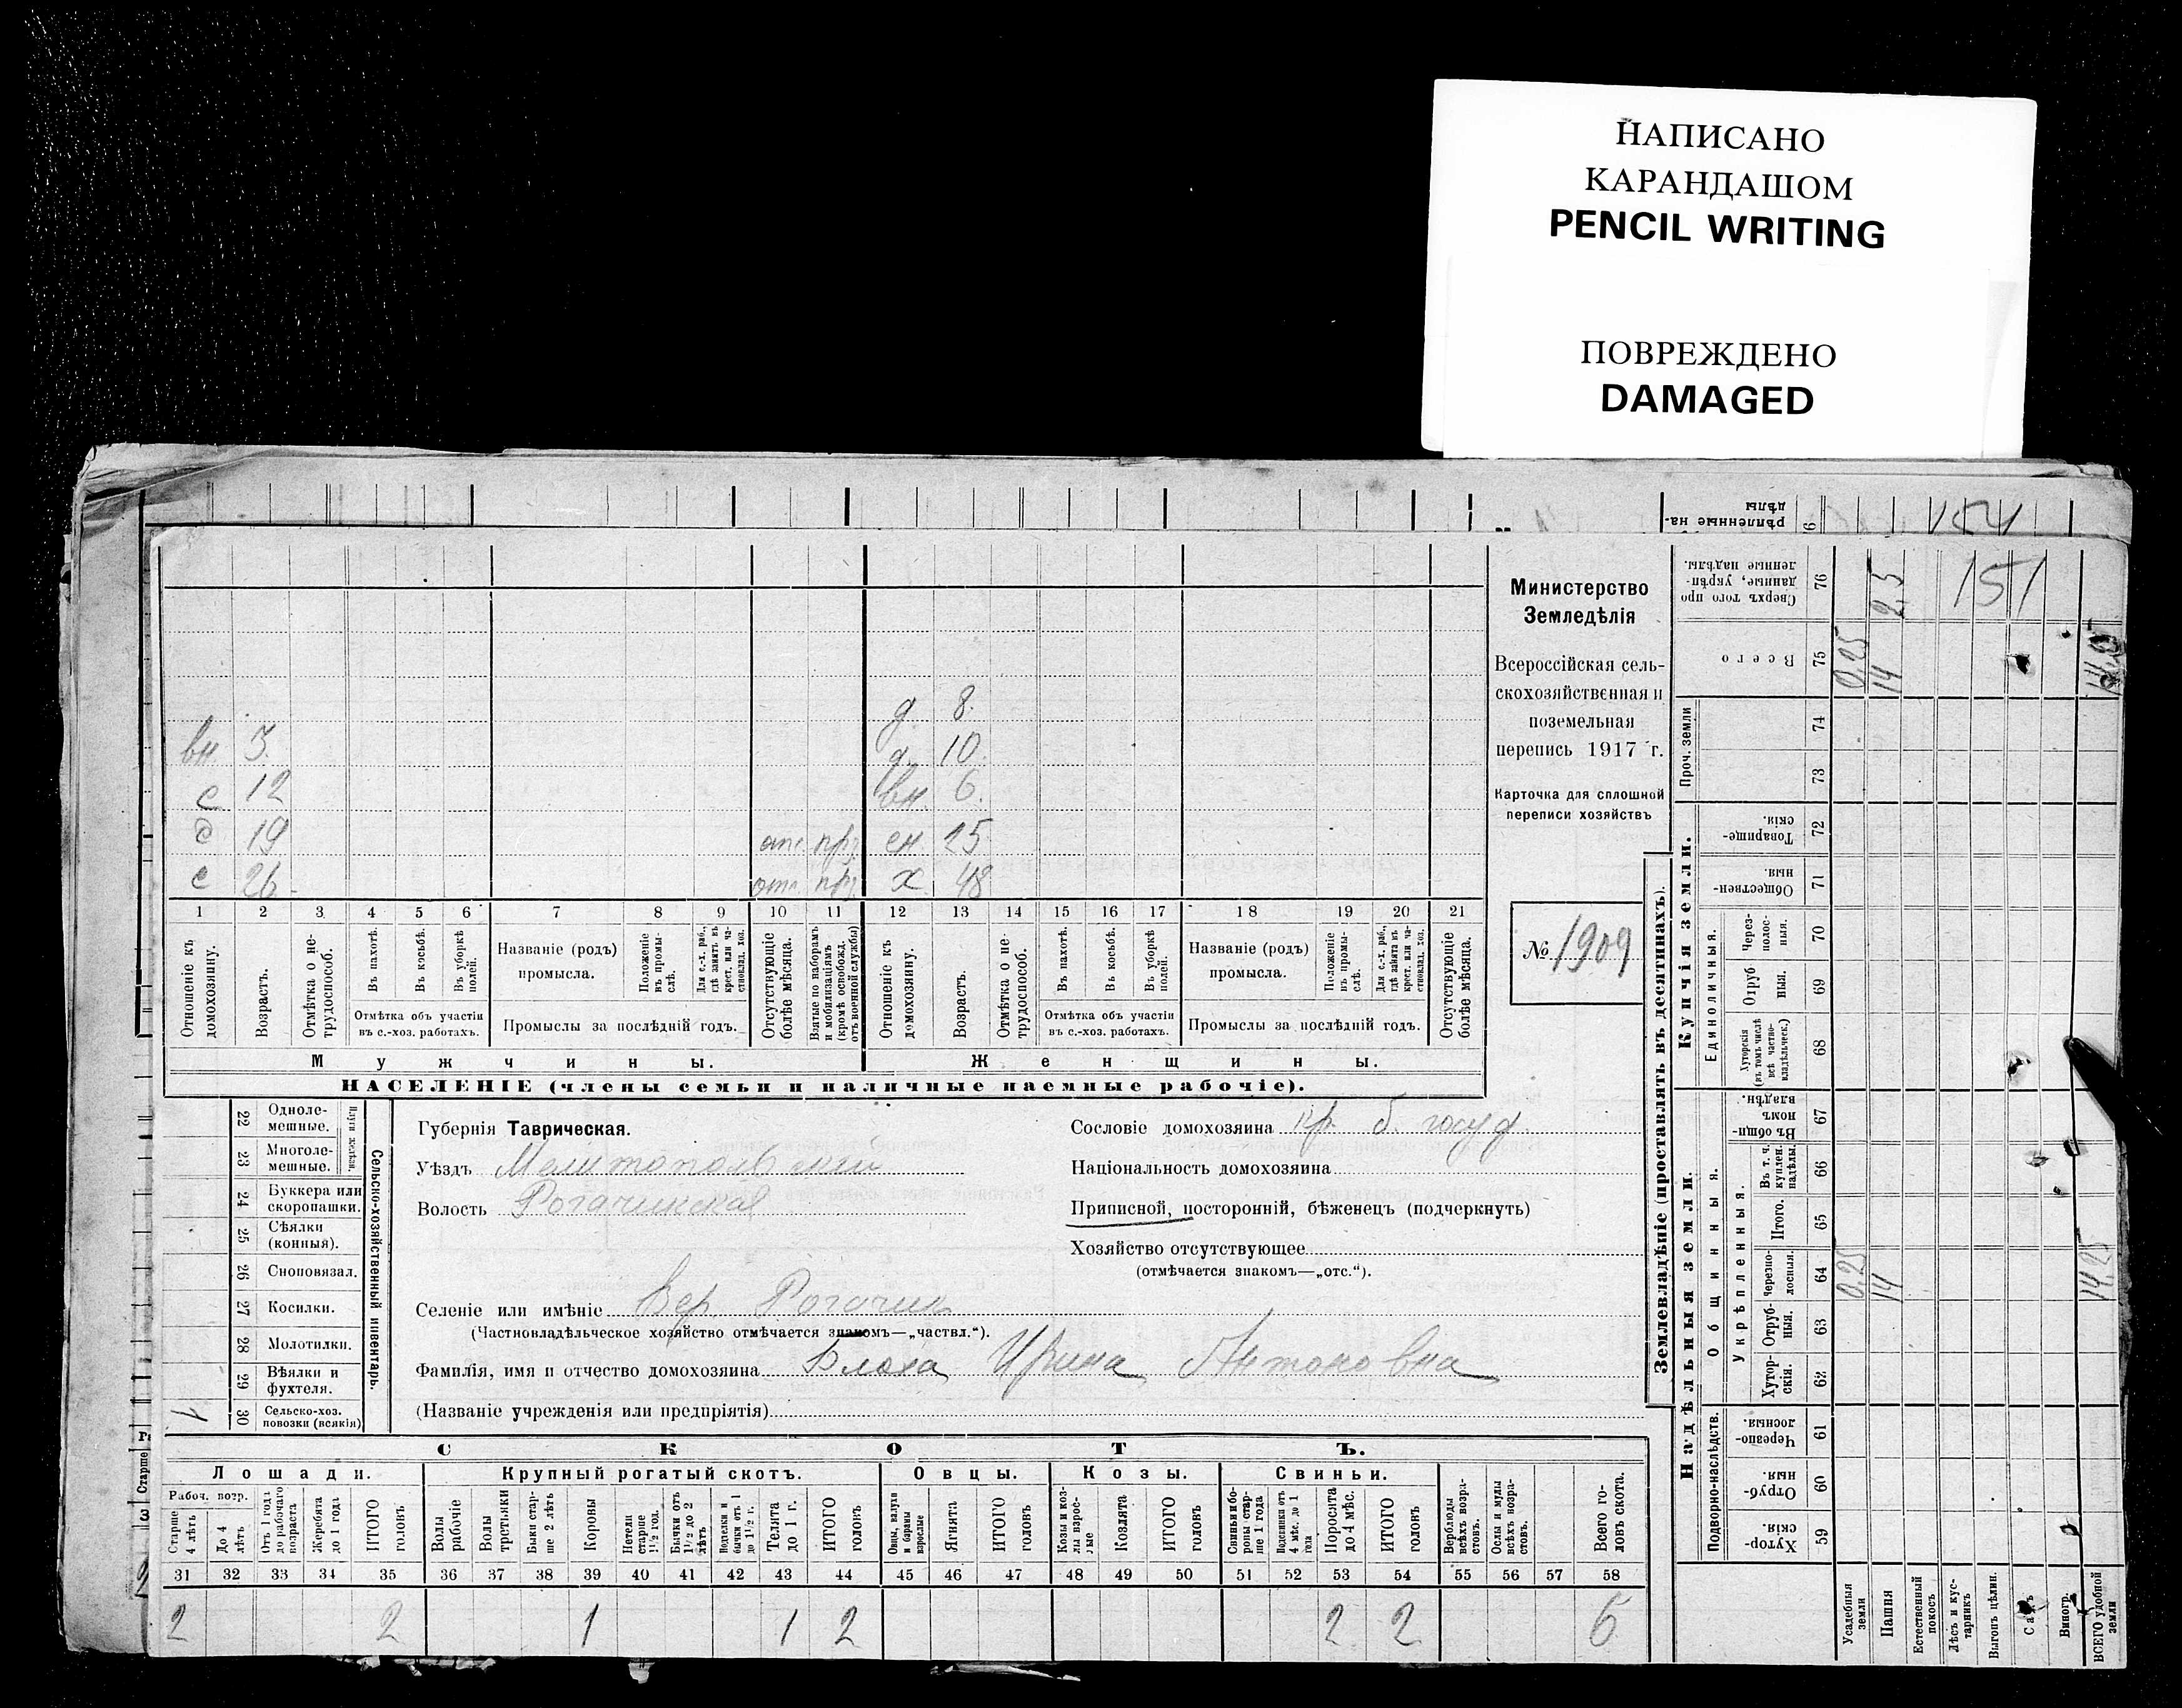 НАПИСАНО
КАРАНДАШОМ
PENCIL WRITING
ПОВРЕЖДЕНО
DAMAGED
154
рѣпленные на-
дѣлы
151
Министерство
Земледѣлія
Всероссійская сель-
скохозяйственная и
поземельная
перепись 1917 г.
Карточка для сплошной
переписи хозяйствъ
№ 1909
д 8.
вн 3. д. 10.
с 12 вн. 6.
с 19 отс. пр. сн. 25
с 26 отс. пр. х 48
1 2 3 4 5 6 7 8 9 10 11 12 13 14 15 16 17 18 19 20 21
Отношеніе къ домохозяину.
Возрастъ.
Отмѣтка о не-трудоспособ.
Въ пахотѣ.
Въ косьбѣ.
Въ уборкѣ полей.
Отмѣтка объ участіи въ с.-хоз. работахъ.
Названіе (родъ) промысла.
Положеніе въ промы-слѣ.
Для с.-х. раб., гдѣ занятъ въ крест. или ча-стновлад. хоз.
Промыслы за послѣдній годъ.
Отсутствующіе болѣе мѣсяца.
Взятые по наборамъ и мобилизаціямъ (кромѣ освобожд. отъ военной службы)
Отношеніе къ домохозяину.
Возрастъ.
Отмѣтка о не-трудоспособ.
Въ пахотѣ.
Въ косьбѣ.
Въ уборкѣ полей.
Отмѣтка объ участіи въ с.-хоз. работахъ.
Названіе (родъ) промысла.
Положеніе въ промы-слѣ.
Для с.-х. раб., гдѣ занятъ въ крест. или ча-стновлад. хоз.
Промыслы за послѣдній годъ.
Отсутствующіе болѣе мѣсяца.
Мужчины. Женщины.
НАСЕЛЕНІЕ (члены семьи и наличные наемные рабочіе).
22 Одноле-мешные.
23 Многоле-мешные.
24 Буккера или скоропашки.
25 Сѣялки (конныя).
26 Сноповязал.
27 Косилки.
28 Молотилки.
29 Вѣялки и фухтеля.
1 30 Сельско-хоз. повозки (всякія).
Сельско-хозяйственный инвентарь.
Губернія Таврическая.
Уѣздъ Мелитопольскій
Волость Рогачикская
Сословіе домохозяина кр. б. госуд.
Національность домохозяина
Приписной, посторонній, бѣженецъ (подчеркнуть)
Хозяйство отсутствующее
(отмѣчается знакомъ—„отс.“).
Селеніе или имѣніе Вер. Рогачик
(Частновладѣльческое хозяйство отмѣчается знакомъ—„частвл.“).
Фамилія, имя и отчество домохозяина Блоха Ирина Антоновна
(Названіе учрежденія или предпріятія)
СКОТЪ.
Лошади. Крупный рогатый скотъ. Овцы. Козы. Свиньи.
Рабоч. возр.
Старше 4 лѣтъ
До 4 лѣтъ
Отъ 1 года до рабочаго возраста
Жеребята до 1 года
ИТОГО головъ
Волы рабочіе
Волы третьяки
Быки стар-ше 2 лѣтъ
Коровы
Нетели старше 1½ год.
Бычки отъ 1½ до 2 лѣтъ
бычки отъ 1 до 1½ г.
Телята до 1 г.
ИТОГО головъ
Овцы, валухи и бараны взрослые
Ягнята
ИТОГО головъ
Козы и коз-лы взрос-лые
Козлята
ИТОГО головъ
Свиньи и бо-ровы стар-ше 1 года
Подсвинки отъ 4 мѣс. до 1 года
Поросята до 4 мѣс.
ИТОГО головъ
Верблюды всѣхъ возра-стовъ.
Ослы и мулы всѣхъ возра-стовъ.
Всего го-ловъ скота.
31 32 33 34 35 36 37 38 39 40 41 42 43 44 45 46 47 48 49 50 51 52 53 54 55 56 57 58
2 2 1 1 2 2 2 6
Землевладѣніе (проставлять въ десятинахъ).
Надѣльныя земли. Купчія земли.
Подворно-наслѣдств.
Общинныя.
Укрѣпленныя.
Единоличныя.
Проч. земли
Хутор-скія. 59
Отруб-ныя. 60
Черезпо-лосныя. 61
Хутор-скія. 62
Отруб-ныя. 63
Черезпо-лосныя. 64
Итого. 65
Въ т. ч. куплен. надѣлы. 66
Въ общин-номъ владѣн. 67
Хуторскія (въ томъ числѣ всѣ частно-владѣльческ.) 68
Отруб-ныя. 69
Через-полос-ныя. 70
Обществен-ныя. 71
Товарище-скія. 72
73
74
Всего 75
Сверхъ того про-данные, укрѣп-ленные надѣлы. 76
Усадебныя земли 0.25 0.25
Пашня 14 14 2,5
Естественный покосъ
Лѣсъ и кус-тарникъ
Выгонъ цѣлин.
Садъ
Виногр.
ВСЕГО удобной земли 14,25 14,25